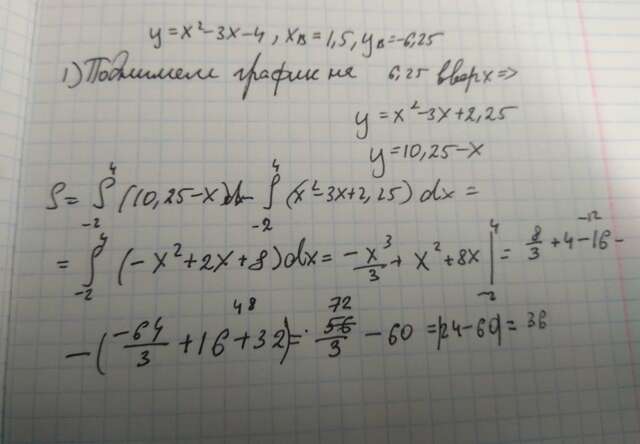 y=x²-3x-4, xв=1,5, yв=-6,25
1) Поднимем график на 6,25 вверх =>
y=x²-3x+2,25
y=10,25-x
S= ∫₋₂⁴ (10,25-x)dx - ∫₋₂⁴ (x²-3x+2,25) dx =
= ∫₋₂⁴ (-x²+2x+8)dx = -x³/3 + x² + 8x |₋₂⁴ = 8/3 + 4 - 16 -
-12
- (-64/3 + 16 + 32) = 56/3 - 60 = |24-60| = 36
48 72